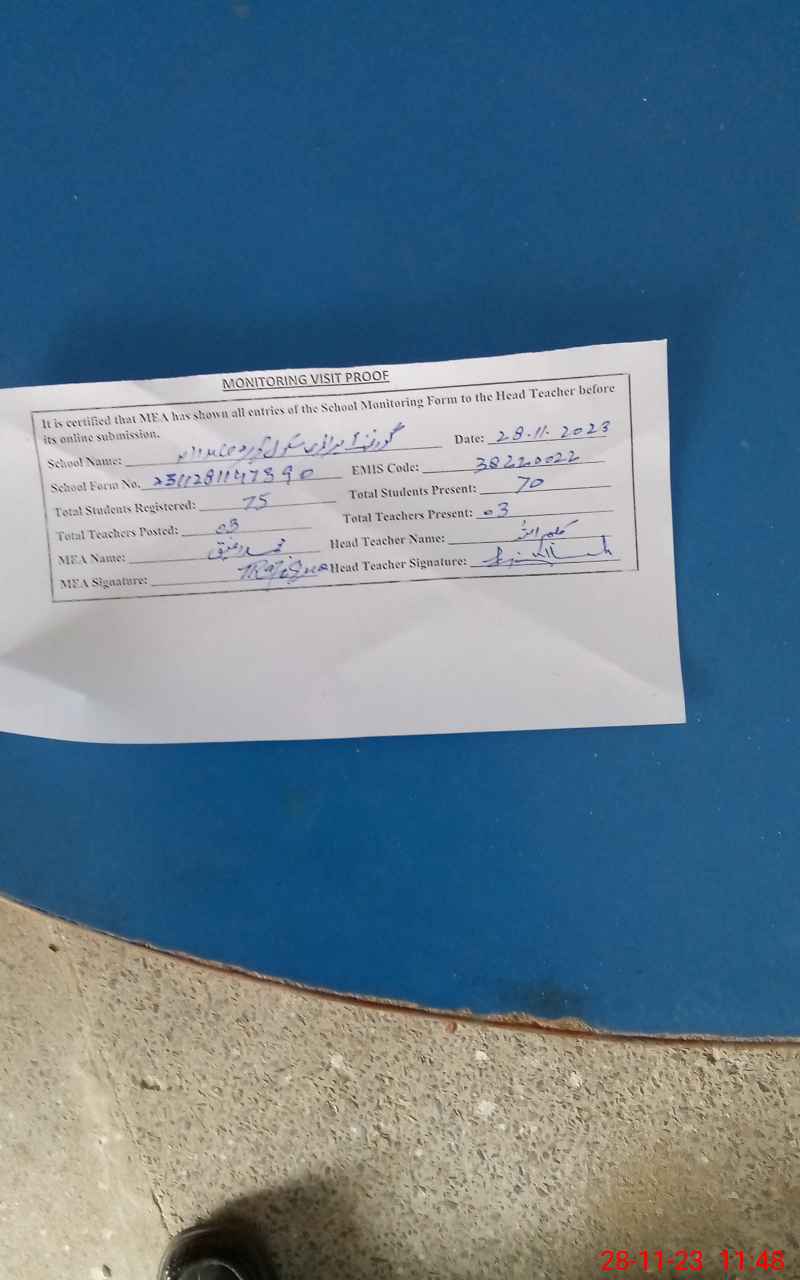 MONITORING VISIT PROOF
It is certified that MEA has shown all entries of the School Monitoring Form to the Head Teacher before
its online submission.
School Name: گورنمنٹ Date: 28.11.2023
School Form No. 2311281147390 EMIS Code: 38220022
Total Students Registered: 75 Total Students Present: 70
Total Teachers Posted: 03 Total Teachers Present: 03
MEA Name: محمد رفیق Head Teacher Name:
MEA Signature: Head Teacher Signature:
28-11-23 11:48